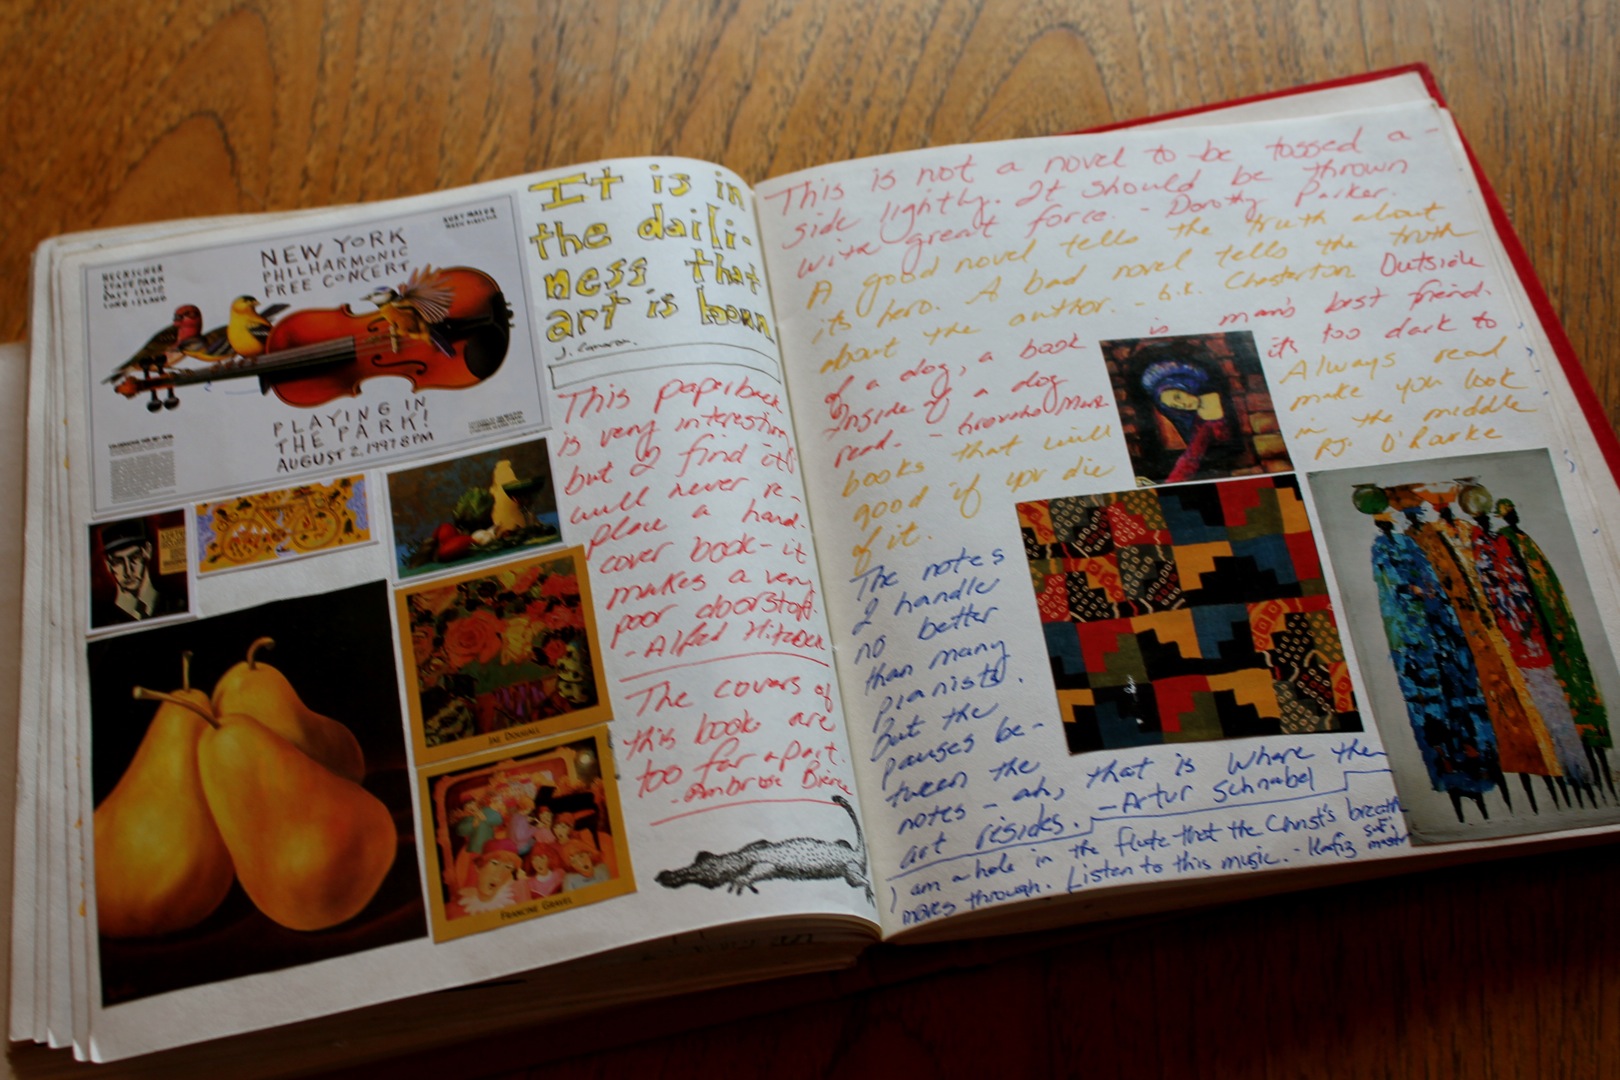 HECKSCHER
STATE PARK
EAST ISLIP
LONG ISLAND
KURT MASUR
MUSIC DIRECTOR
NEW YORK
PHILHARMONIC
FREE CONCERT
PLAYING IN
THE PARK!
AUGUST 2, 1997 8 PM
JAE DOUGALL
FRANCINE GRAVEL
It is in
the daili-
ness that
art is born
J. Cameron.
This paperback
is very interesting
but I find it
will never re-
place a hard-
cover book - it
makes a very
poor doorstop.
- Alfred Hitchcock
The covers of
this book are
too far apart.
- Ambrose Bierce
This is not a novel to be tossed a-
side lightly. It should be thrown
with great force. - Dorothy Parker.
A good novel tells the truth about
its hero. A bad novel tells the truth
about the author. - G.K. Chesterton Outside
of a dog, a book is man's best friend.
Inside of a dog it's too dark to
read. - Groucho Marx Always read
books that will make you look
good if you die in the middle
of it. P.J. O'Rourke
The notes
I handle
no better
than many
pianists.
But the
pauses be-
tween the
notes - ah, that is where the
art resides. - Artur Schnabel
I am a hole in the flute that the Christ's breath
moves through. Listen to this music. - Hafiz sufi master